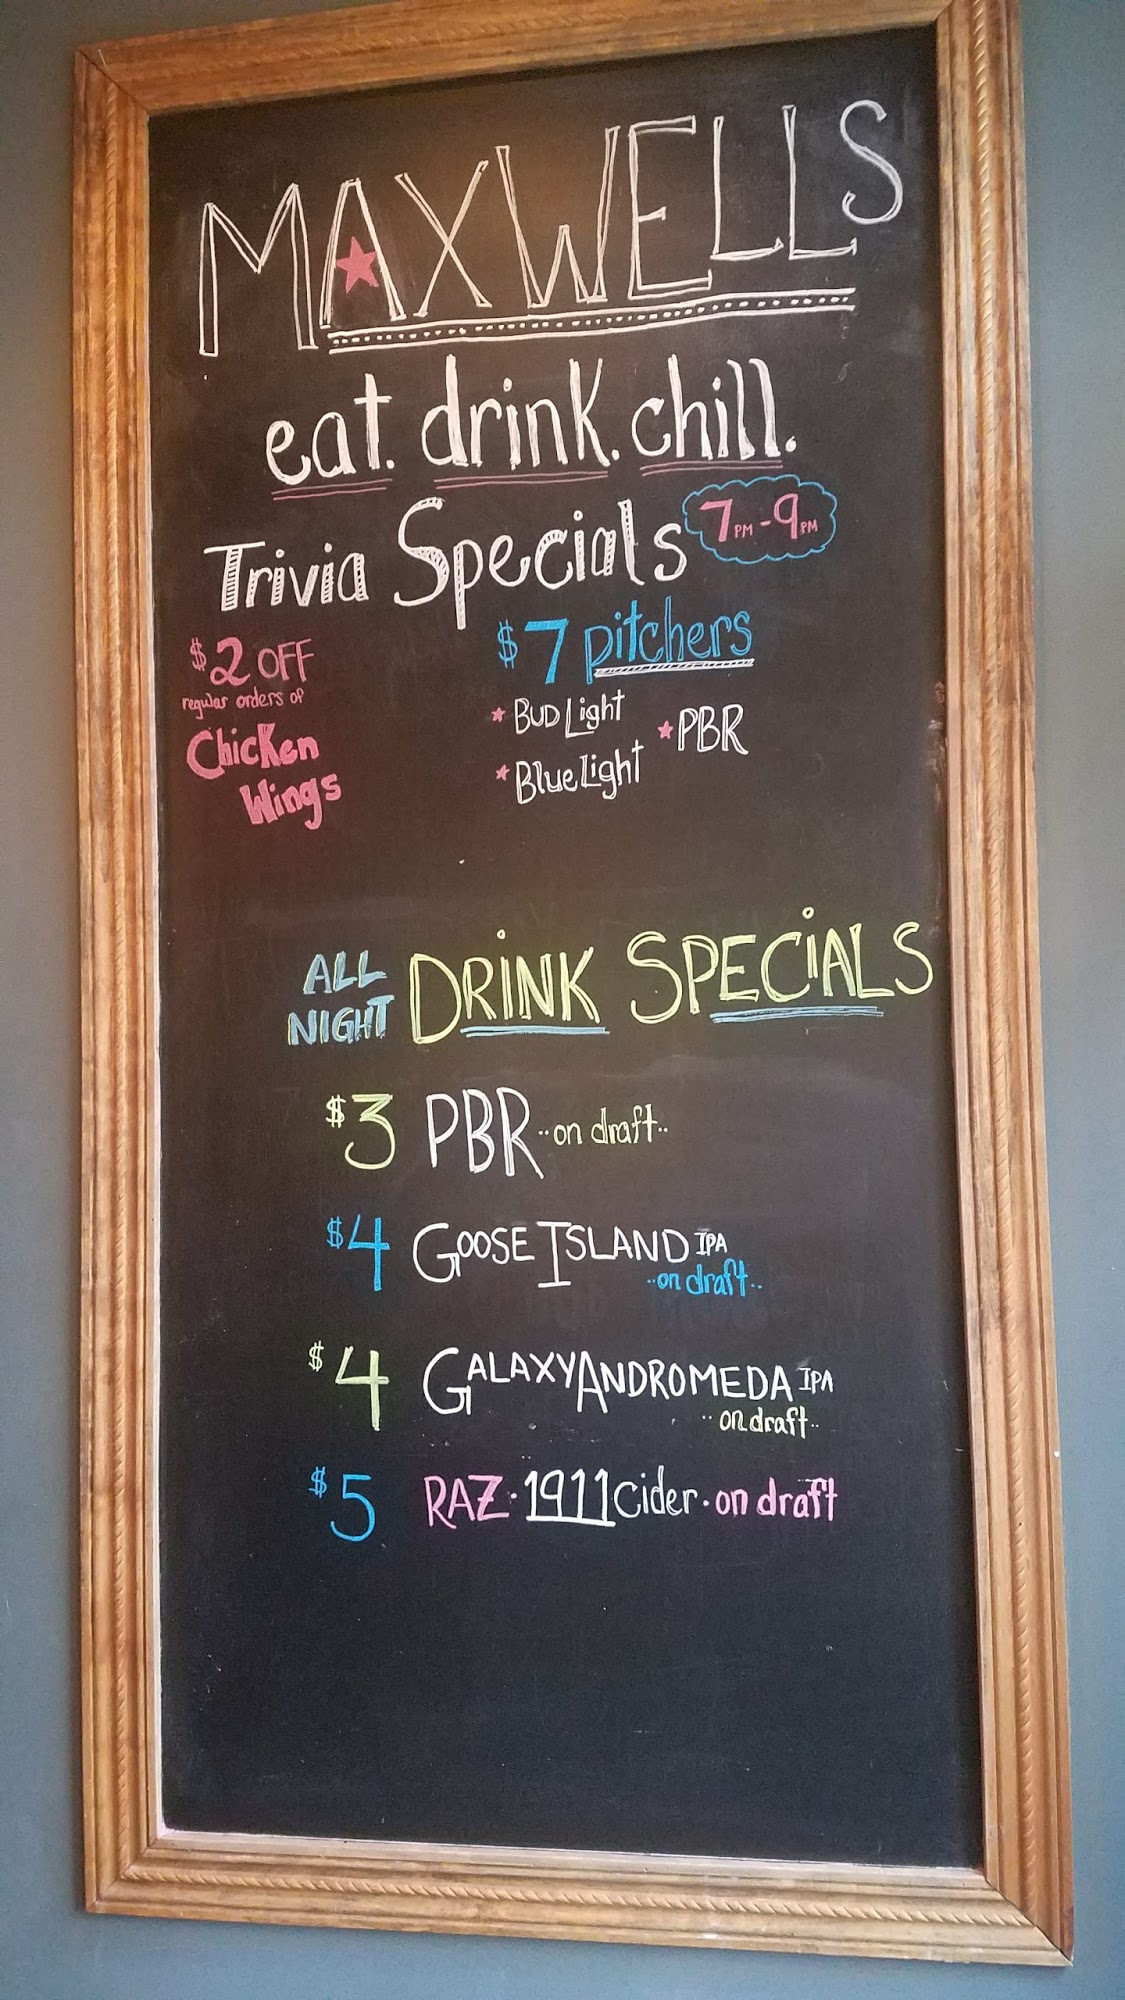 MAXWELLS
eat. drink. chill.
Trivia Specials 7PM-9PM
$2 OFF
regular orders of
Chicken
Wings
$7 pitchers
* Bud Light
* PBR
* Blue Light
ALL
NIGHT
DRINK SPECIALS
$3 PBR ..on draft..
$4 GOOSE ISLAND IPA
..on draft..
$4 GALAXY ANDROMEDA IPA
..on draft..
$5 RAZ · 1911 Cider · on draft